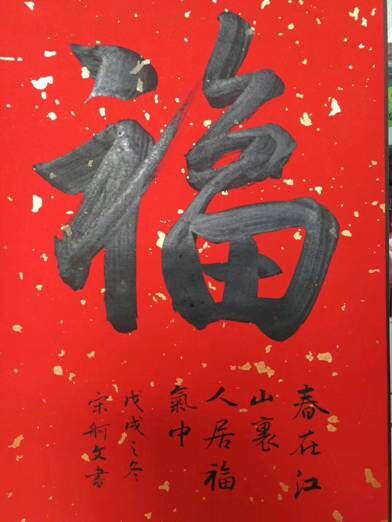 福
春在江
山裏
人居福
氣中
戊戌之冬
宗舸文書